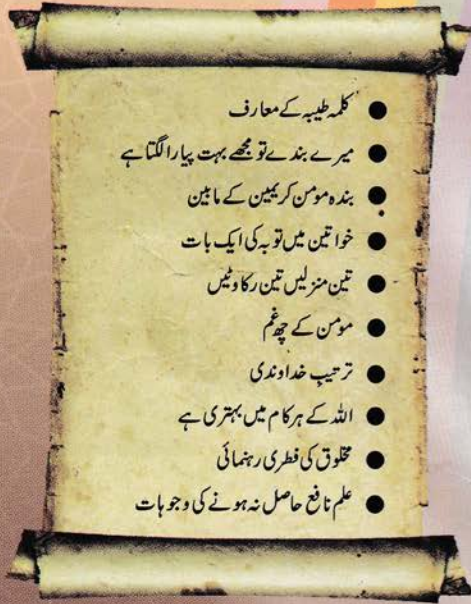 ● کلمہ طیبہ کے معارف
● میرے بندے تو مجھے بہت پیارا لگتا ہے
● بندہ مومن کریمین کے مابین
● خواتین میں توبہ کی ایک بات
● تین منزلیں تین رکاوٹیں
● مومن کے چھ غم
● ترتیبِ خداوندی
● اللہ کے ہر کام میں بہتری ہے
● مخلوق کی فطری رہنمائی
● علم نافع حاصل نہ ہونے کی وجوہات